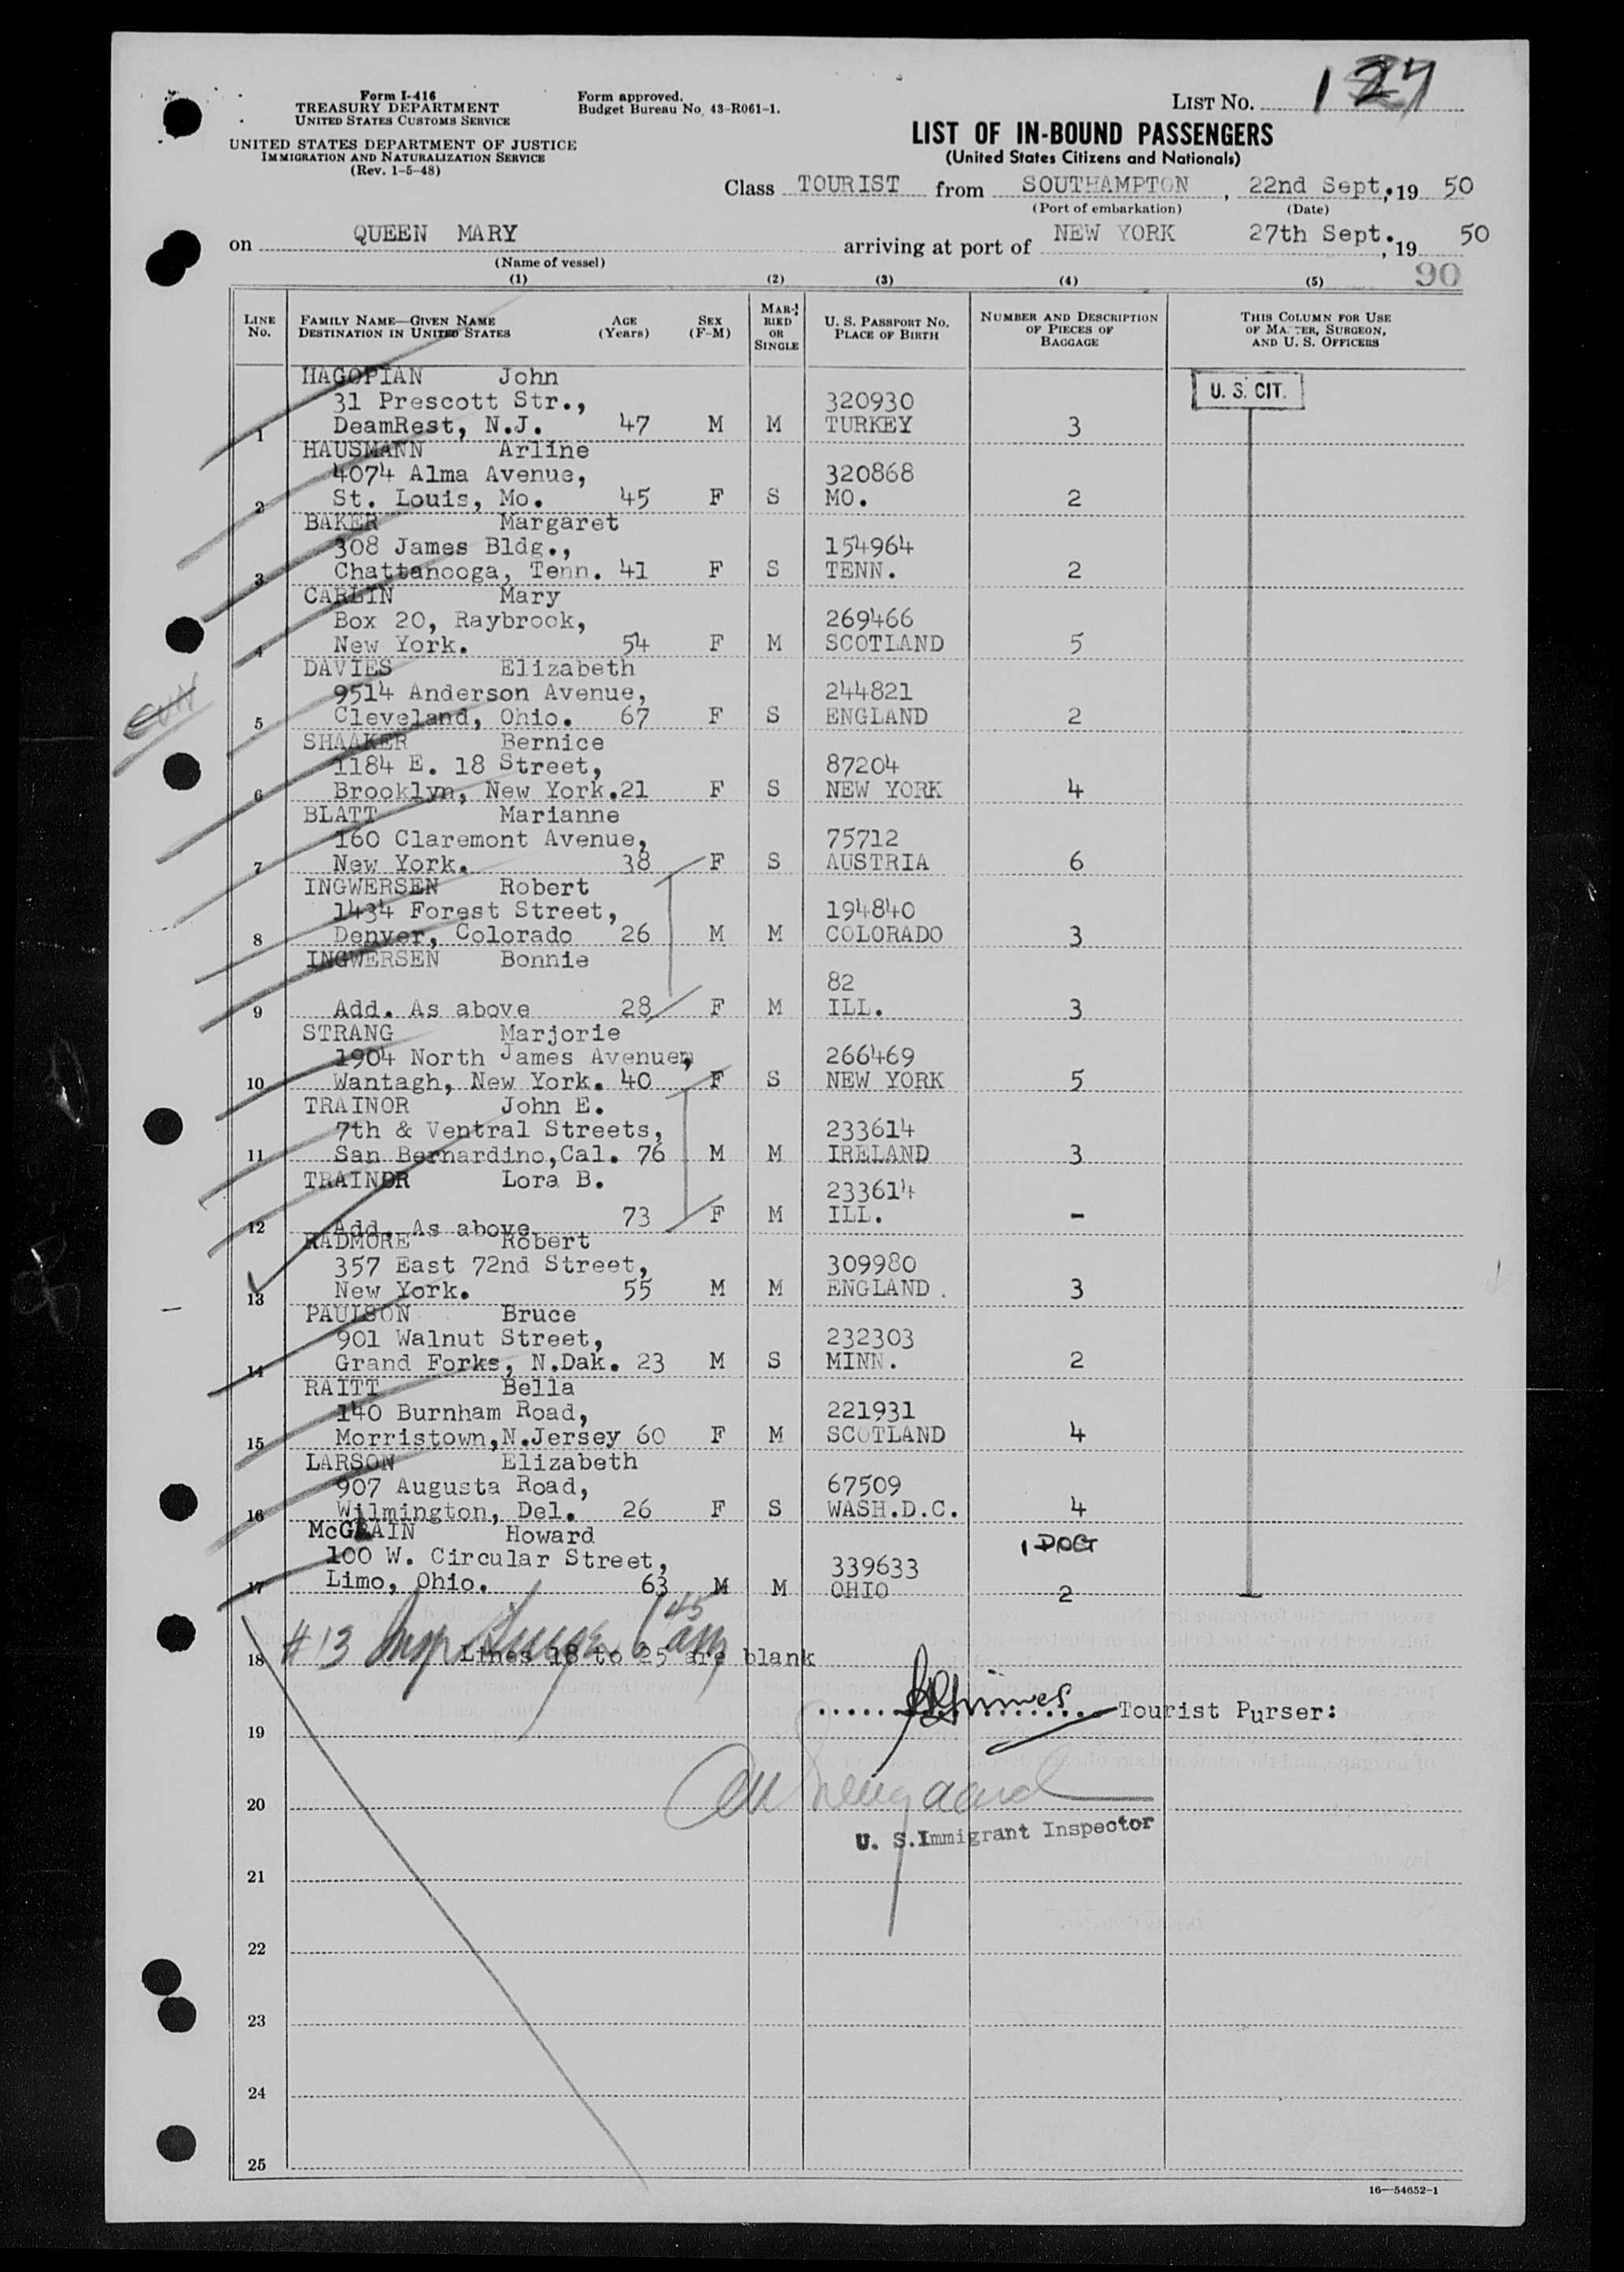 Form I-416
TREASURY DEPARTMENT
UNITED STATES CUSTOMS SERVICE
UNITED STATES DEPARTMENT OF JUSTICE
IMMIGRATION AND NATURALIZATION SERVICE
(Rev. 1-5-48)
Form approved.
Budget Bureau No. 43-R061-1.
LIST No. 127
LIST OF IN-BOUND PASSENGERS
(United States Citizens and Nationals)
Class TOURIST from SOUTHAMPTON, 22nd Sept., 19 50
(Port of embarkation) (Date)
on QUEEN MARY arriving at port of NEW YORK 27th Sept., 19 50
(Name of vessel)
90
(1) (2) (3) (4) (5)
LINE No. FAMILY NAME—GIVEN NAME DESTINATION IN UNITED STATES AGE (Years) SEX (F-M) MARRIED OR SINGLE U. S. PASSPORT NO. PLACE OF BIRTH NUMBER AND DESCRIPTION OF PIECES OF BAGGAGE THIS COLUMN FOR USE OF MASTER, SURGEON, AND U. S. OFFICERS
HAGOPIAN John
31 Prescott Str., 320930 U. S. CIT.
1 DeamRest, N.J. 47 M M TURKEY 3
HAUSMANN Arline
4074 Alma Avenue, 320868
2 St. Louis, Mo. 45 F S MO. 2
BAKER Margaret
308 James Bldg., 154964
3 Chattanooga, Tenn. 41 F S TENN. 2
CARLIN Mary
Box 20, Raybrook, 269466
4 New York. 54 F M SCOTLAND 5
DAVIES Elizabeth
9514 Anderson Avenue, 244821
5 Cleveland, Ohio. 67 F S ENGLAND 2
SHAAKER Bernice
1184 E. 18 Street, 87204
6 Brooklyn, New York. 21 F S NEW YORK 4
BLATT Marianne
160 Claremont Avenue, 75712
7 New York. 38 F S AUSTRIA 6
INGWERSEN Robert
1434 Forest Street, 194840
8 Denver, Colorado 26 M M COLORADO 3
INGWERSEN Bonnie
82
9 Add. As above 28 F M ILL. 3
STRANG Marjorie
1904 North James Avenue, 266469
10 Wantagh, New York. 40 F S NEW YORK 5
TRAINOR John E.
7th & Ventral Streets, 233614
11 San Bernardino, Cal. 76 M M IRELAND 3
TRAINOR Lora B.
233614
12 Add. As above 73 F M ILL. -
RADMORE Robert
357 East 72nd Street, 309980
13 New York. 55 M M ENGLAND. 3
PAULSON Bruce
901 Walnut Street, 232303
14 Grand Forks, N.Dak. 23 M S MINN. 2
RAITT Bella
140 Burnham Road, 221931
15 Morristown, N.Jersey 60 F M SCOTLAND 4
LARSON Elizabeth
907 Augusta Road, 67509
16 Wilmington, Del. 26 F S WASH.D.C. 4
McGRAIN Howard 1 DOG
100 W. Circular Street, 339633
17 Limo, Ohio. 63 M M OHIO 2
#13 Insp 45
18 Lines 18 to 25 are blank
Tourist Purser:
19
20
U. S. Immigrant Inspector
21
22
23
24
25
16—54652-1